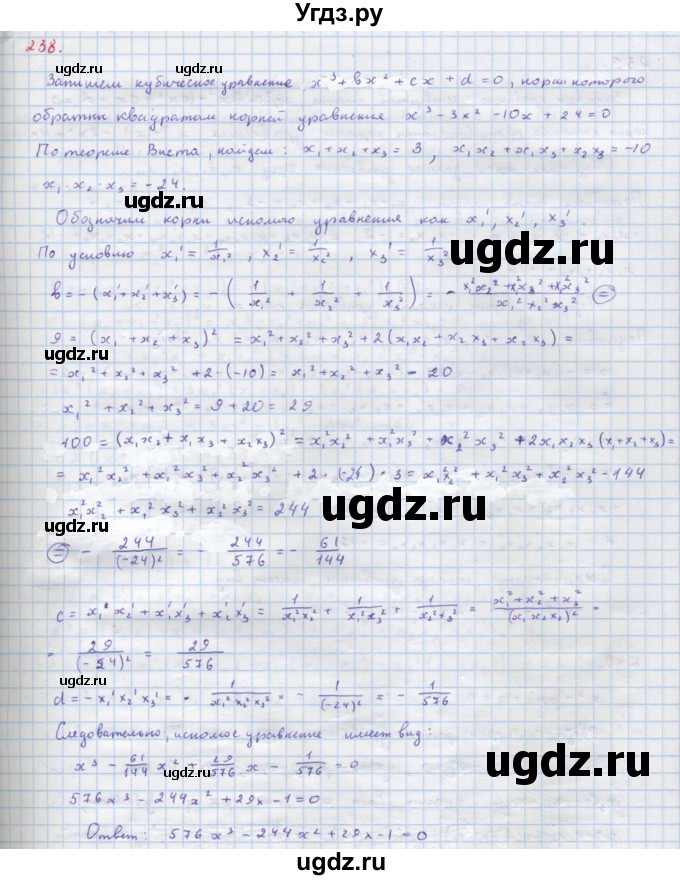 Угдз.ру
238.
Запишем кубическое уравнение x³ + bx² + cx + d = 0, корни которого
ugdz.ru ugdz.ru
обратны квадратам корней уравнения x³ - 3x² - 10x + 24 = 0
По теореме Виета, найдем: x₁ + x₂ + x₃ = 3, x₁x₂ + x₁x₃ + x₂x₃ = -10
x₁ · x₂ · x₃ = -24.
ugdz.ru
Обозначим корни искомого уравнения как x₁', x₂', x₃'.
По условию x₁' = 1/x₁², x₂' = 1/x₂², x₃' = 1/x₃²
ugdz.ru ugdz.ru
b = -(x₁' + x₂' + x₃') = -(1/x₁² + 1/x₂² + 1/x₃²) = -(x₁²x₂² + x₁²x₃² + x₂²x₃²)/(x₁²x₂²x₃²) (=)
9 = (x₁ + x₂ + x₃)² = x₁² + x₂² + x₃² + 2(x₁x₂ + x₂x₃ + x₁x₃) =
ugdz.ru
= x₁² + x₂² + x₃² + 2·(-10) = x₁² + x₂² + x₃² - 20
x₁² + x₂² + x₃² = 9 + 20 = 29
ugdz.ru ugdz.ru
100 = (x₁x₂ + x₁x₃ + x₂x₃)² = x₁²x₂² + x₁²x₃² + x₂²x₃² + 2x₁x₂x₃(x₁ + x₂ + x₃) =
= x₁²x₂² + x₁²x₃² + x₂²x₃² + 2·(-24)·3 = x₁²x₂² + x₁²x₃² + x₂²x₃² - 144
x₁²x₂² + x₁²x₃² + x₂²x₃² = 244
ugdz.ru
(=) - 244/(-24)² = - 244/576 = - 61/144
ugdz.ru ugdz.ru
c = x₁'x₂' + x₁'x₃' + x₂'x₃' = 1/x₁²x₂² + 1/x₁²x₃² + 1/x₂²x₃² = (x₁² + x₂² + x₃²)/(x₁x₂x₃)² =
= 29/(-24)² = 29/576
ugdz.ru
d = -x₁'x₂'x₃' = - 1/x₁²x₂²x₃² = - 1/(-24)² = - 1/576
Следовательно, искомое уравнение имеет вид:
ugdz.ru ugdz.ru
x³ - 61/144 x² + 29/576 x - 1/576 = 0
576x³ - 244x² + 29x - 1 = 0
Ответ: 576x³ - 244x² + 29x - 1 = 0
ugdz.ru